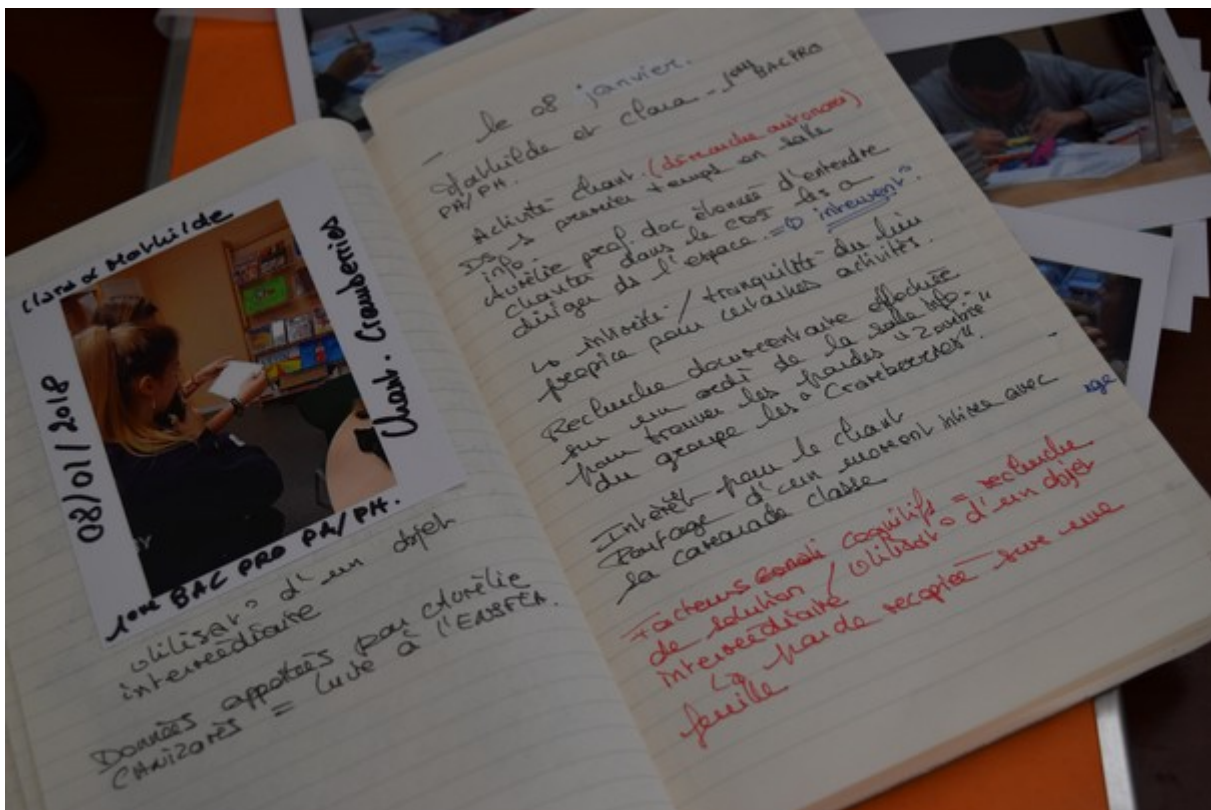 Clara & Mathilde
08/01/2018
Chant. Cramberries
1ère BAC PRO PA/PH.
utilisat° d'un objet
intermédiaire
Données apportées par Aurélie
CANIZARÈS = luve à l'ENSFEA.
- le 08 janvier.
Mathilde et Clara - 1ère BAC PRO
PA/PH.
Activité chant. (démarche autonome)
Ds 1 premier temps en salle
info.
Aurélie prof. doc étonné d'entendre
chanter dans le CDI les a
diriger ds l'espace. =
↳ intimité / tranquilité du lieu
propice pour certaines activités.
Recherche documentaire effectuée
sur un ordi de la salle info.
pour trouver les paroles "Zombie"
du groupe les "Cramberries".
Intérêt pour le chant
Partage d'un moment intime avec
sa camarade classe
Facteurs cognitifs = recherche
de solution / utilisat° d'un objet
intermédiaire
↳ parole recopiée sur une
feuille